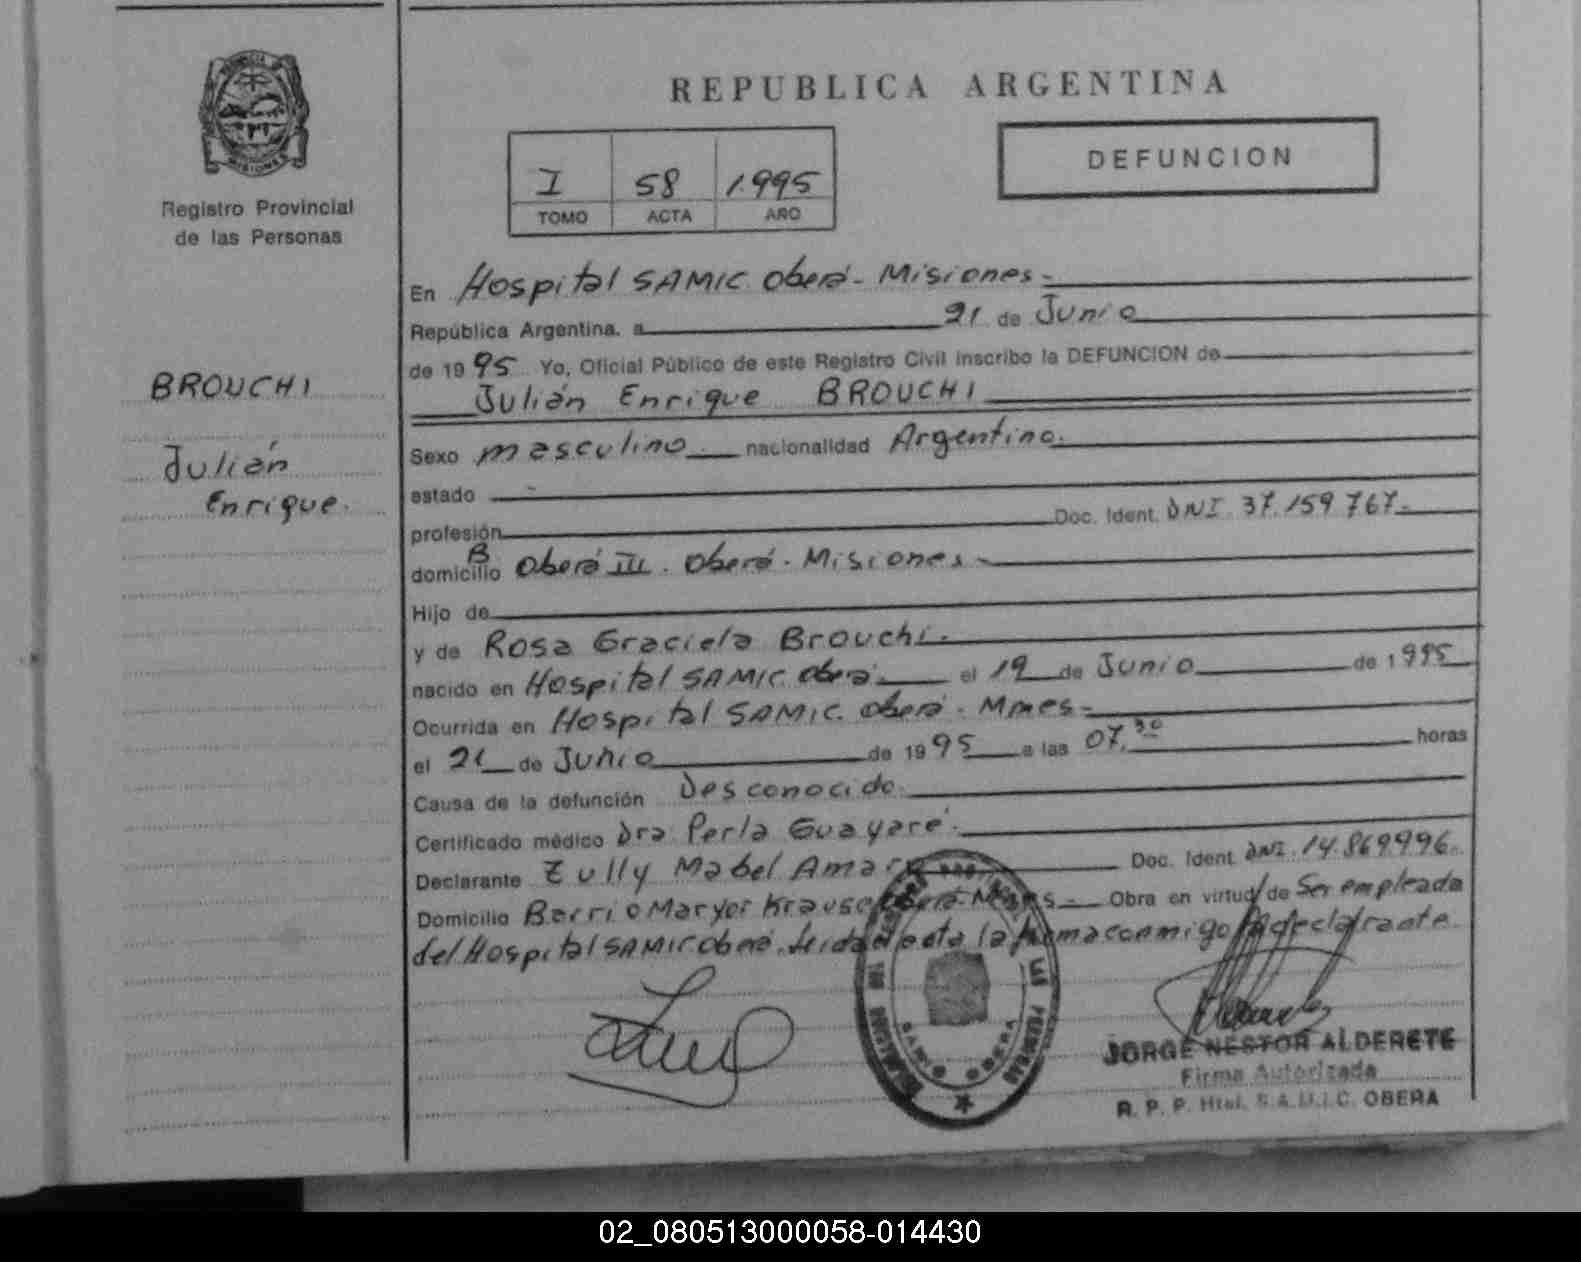 REPUBLICA ARGENTINA
MISIONES
Registro Provincial
de las Personas
I 58 1.995
TOMO ACTA AÑO
DEFUNCION
BROUCHI
Julián
Enrique.
En Hospital SAMIC Oberá - Misiones -
República Argentina, a 21 de Junio
de 19 95 Yo, Oficial Público de este Registro Civil inscribo la DEFUNCION de
Julián Enrique BROUCHI
Sexo masculino. nacionalidad Argentino.
estado -
profesión Doc. Ident. DNI. 37.159.767.-
domicilio B Oberá III. Oberá - Misiones -
Hijo de
y de Rosa Graciela Brouchi.
nacido en Hospital SAMIC Oberá el 19 de Junio de 1995
Ocurrida en Hospital SAMIC. Oberá - Mnes -
el 21 de Junio de 19 95 a las 07,30 horas
Causa de la defunción Desconocido.
Certificado médico Dra. Perla Guayaré.
Declarante Zully Mabel Doc. Ident. DNI. 14.869.996.
Domicilio Barrio Maryor Krause Oberá - Mnes - Obra en virtud de Ser empleada
del Hospital SAMIC Oberá. Leida el acta la firma conmigo la declarante.
JORGE NESTOR ALDERETE
Firma Autorizada
R. P. P. Htal. S.A.M.I.C. OBERA
02_080513000058-014430